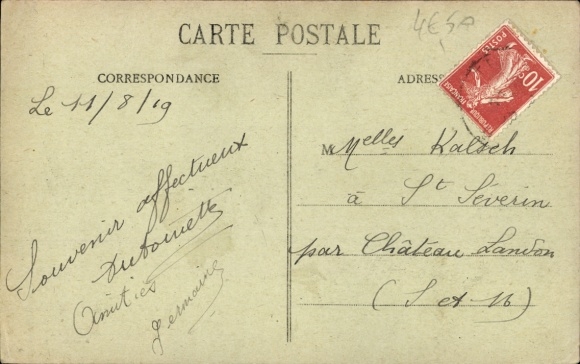 4€50
CARTE POSTALE
CORRESPONDANCE
ADRESS
RÉPUBLIQUE FRANÇAISE
POSTES
10c
Le 11/8/19
Melles Kaltsch
à St Séverin
par Château Landon
(S et M)
Souvenir affectueux
Antoinette
Amitiés
Germaine